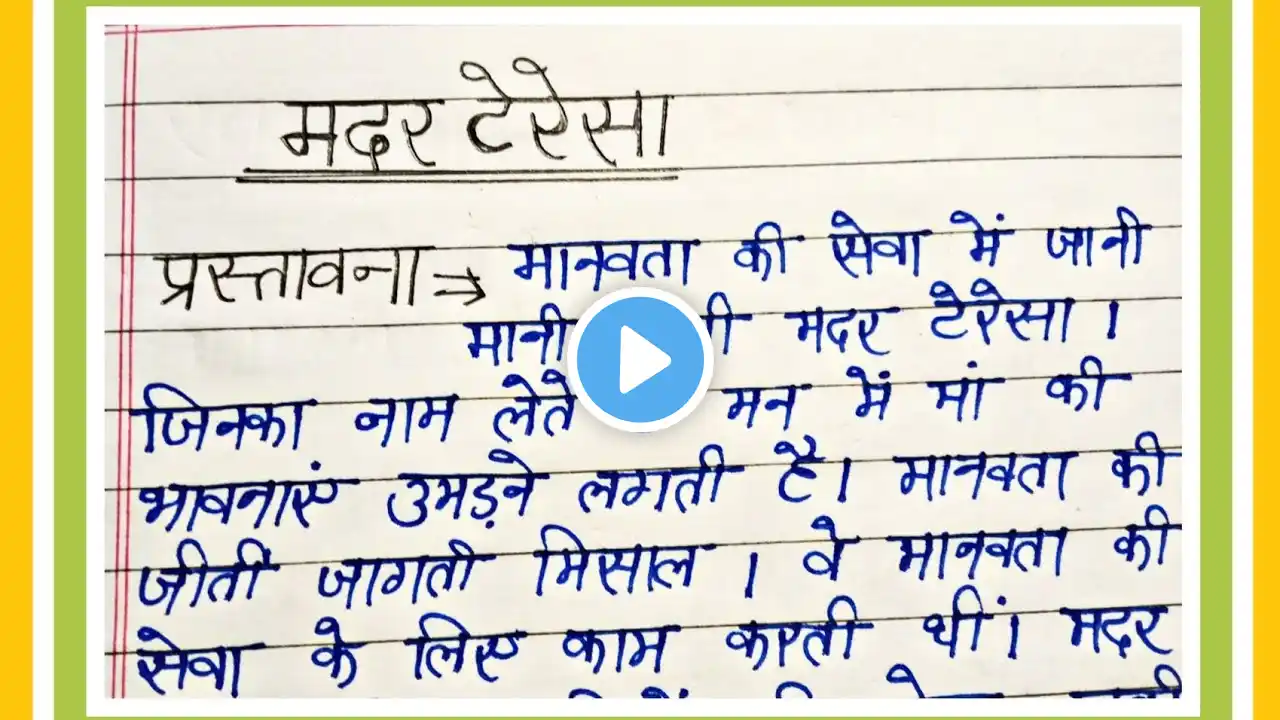 मदर टेरेसा
प्रस्तावना ⇒ मानवता की सेवा में जानी
मदर टेरेसा ।
जिनका नाम लेते मन में मां की
भावनाएं उमड़ने लगती है। मानवता की
जीती जागती मिसाल । वे मानवता की
सेवा के लिए काम करती थीं। मदर